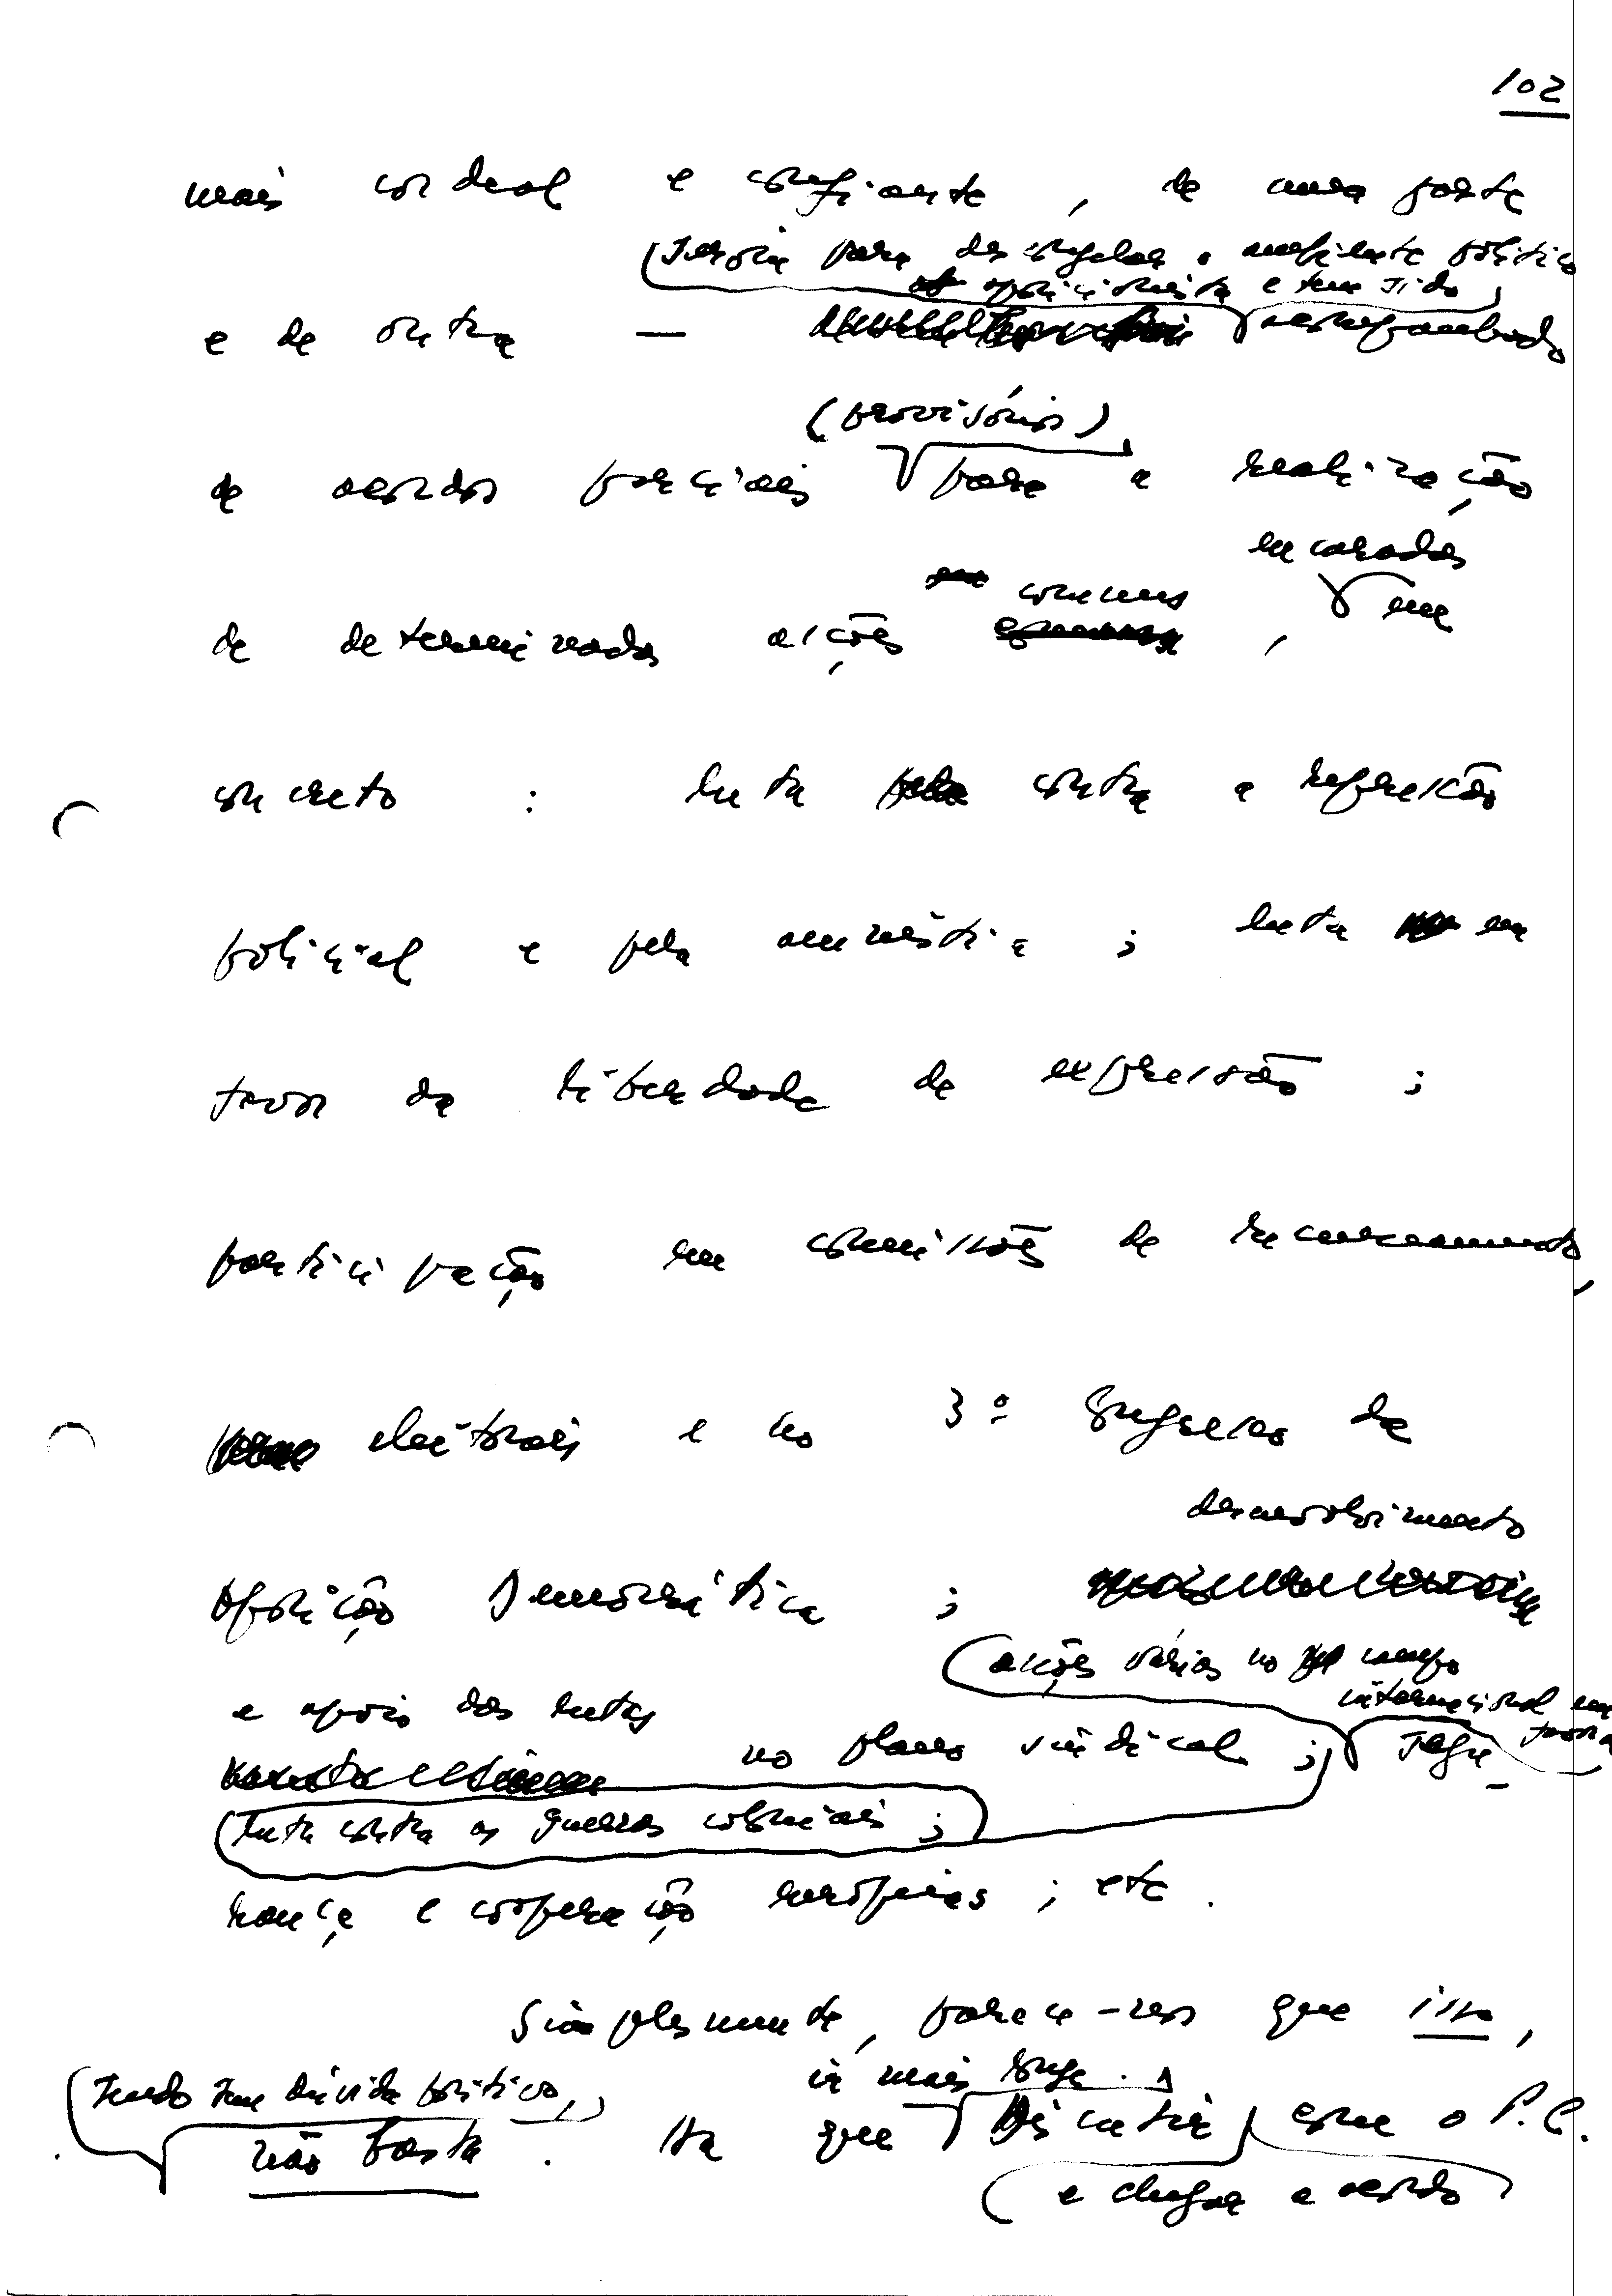 102
mais cordeal e confiante, de uma parte
serviu para descongelar o ambiente político
oposicionista e tem sido
e de outra — acompanhado
(provisórios)
de acordos parciais para a realização
encarados
comuns
de determinadas acções , em
concreto : luta contra a repressão
policial e pela amnistia ; luta em
favor da liberdade de expressão ;
participação em comissões de recenseamento,
eleitorais e no 3º Congresso da
desenvolvimento
Oposição Democrática ;
acções várias no campo
internacional em favor da
e apoio das lutas
no plano sindical ; segu-
luta contra as guerras coloniais ;
rança e cooperação europeias ; etc.
Simplesmente, parece-nos que isso,
ir mais longe.
sendo sem dúvida positivo,
não basta. Há que discutir com o P.C.
e chegar a acordo